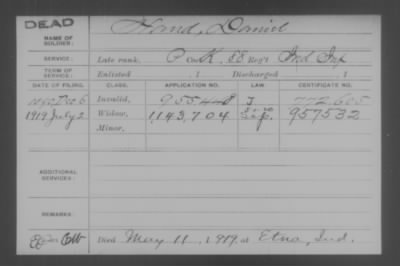 DEAD
NAME OF SOLDIER: Hand, Daniel
SERVICE: Late rank, P Co. K, 88 Reg't Ind Inf
TERM OF SERVICE: Enlisted , 1 Discharged , 1
DATE OF FILING. CLASS. APPLICATION NO. LAW CERTIFICATE NO.
Dec 6 Invalid, 772,605
1919 July 2 Widow, 1,143,704 Sep. 957532
Minor,
ADDITIONAL SERVICES:
REMARKS:
Died May 11, 1919, at Etna, Ind.